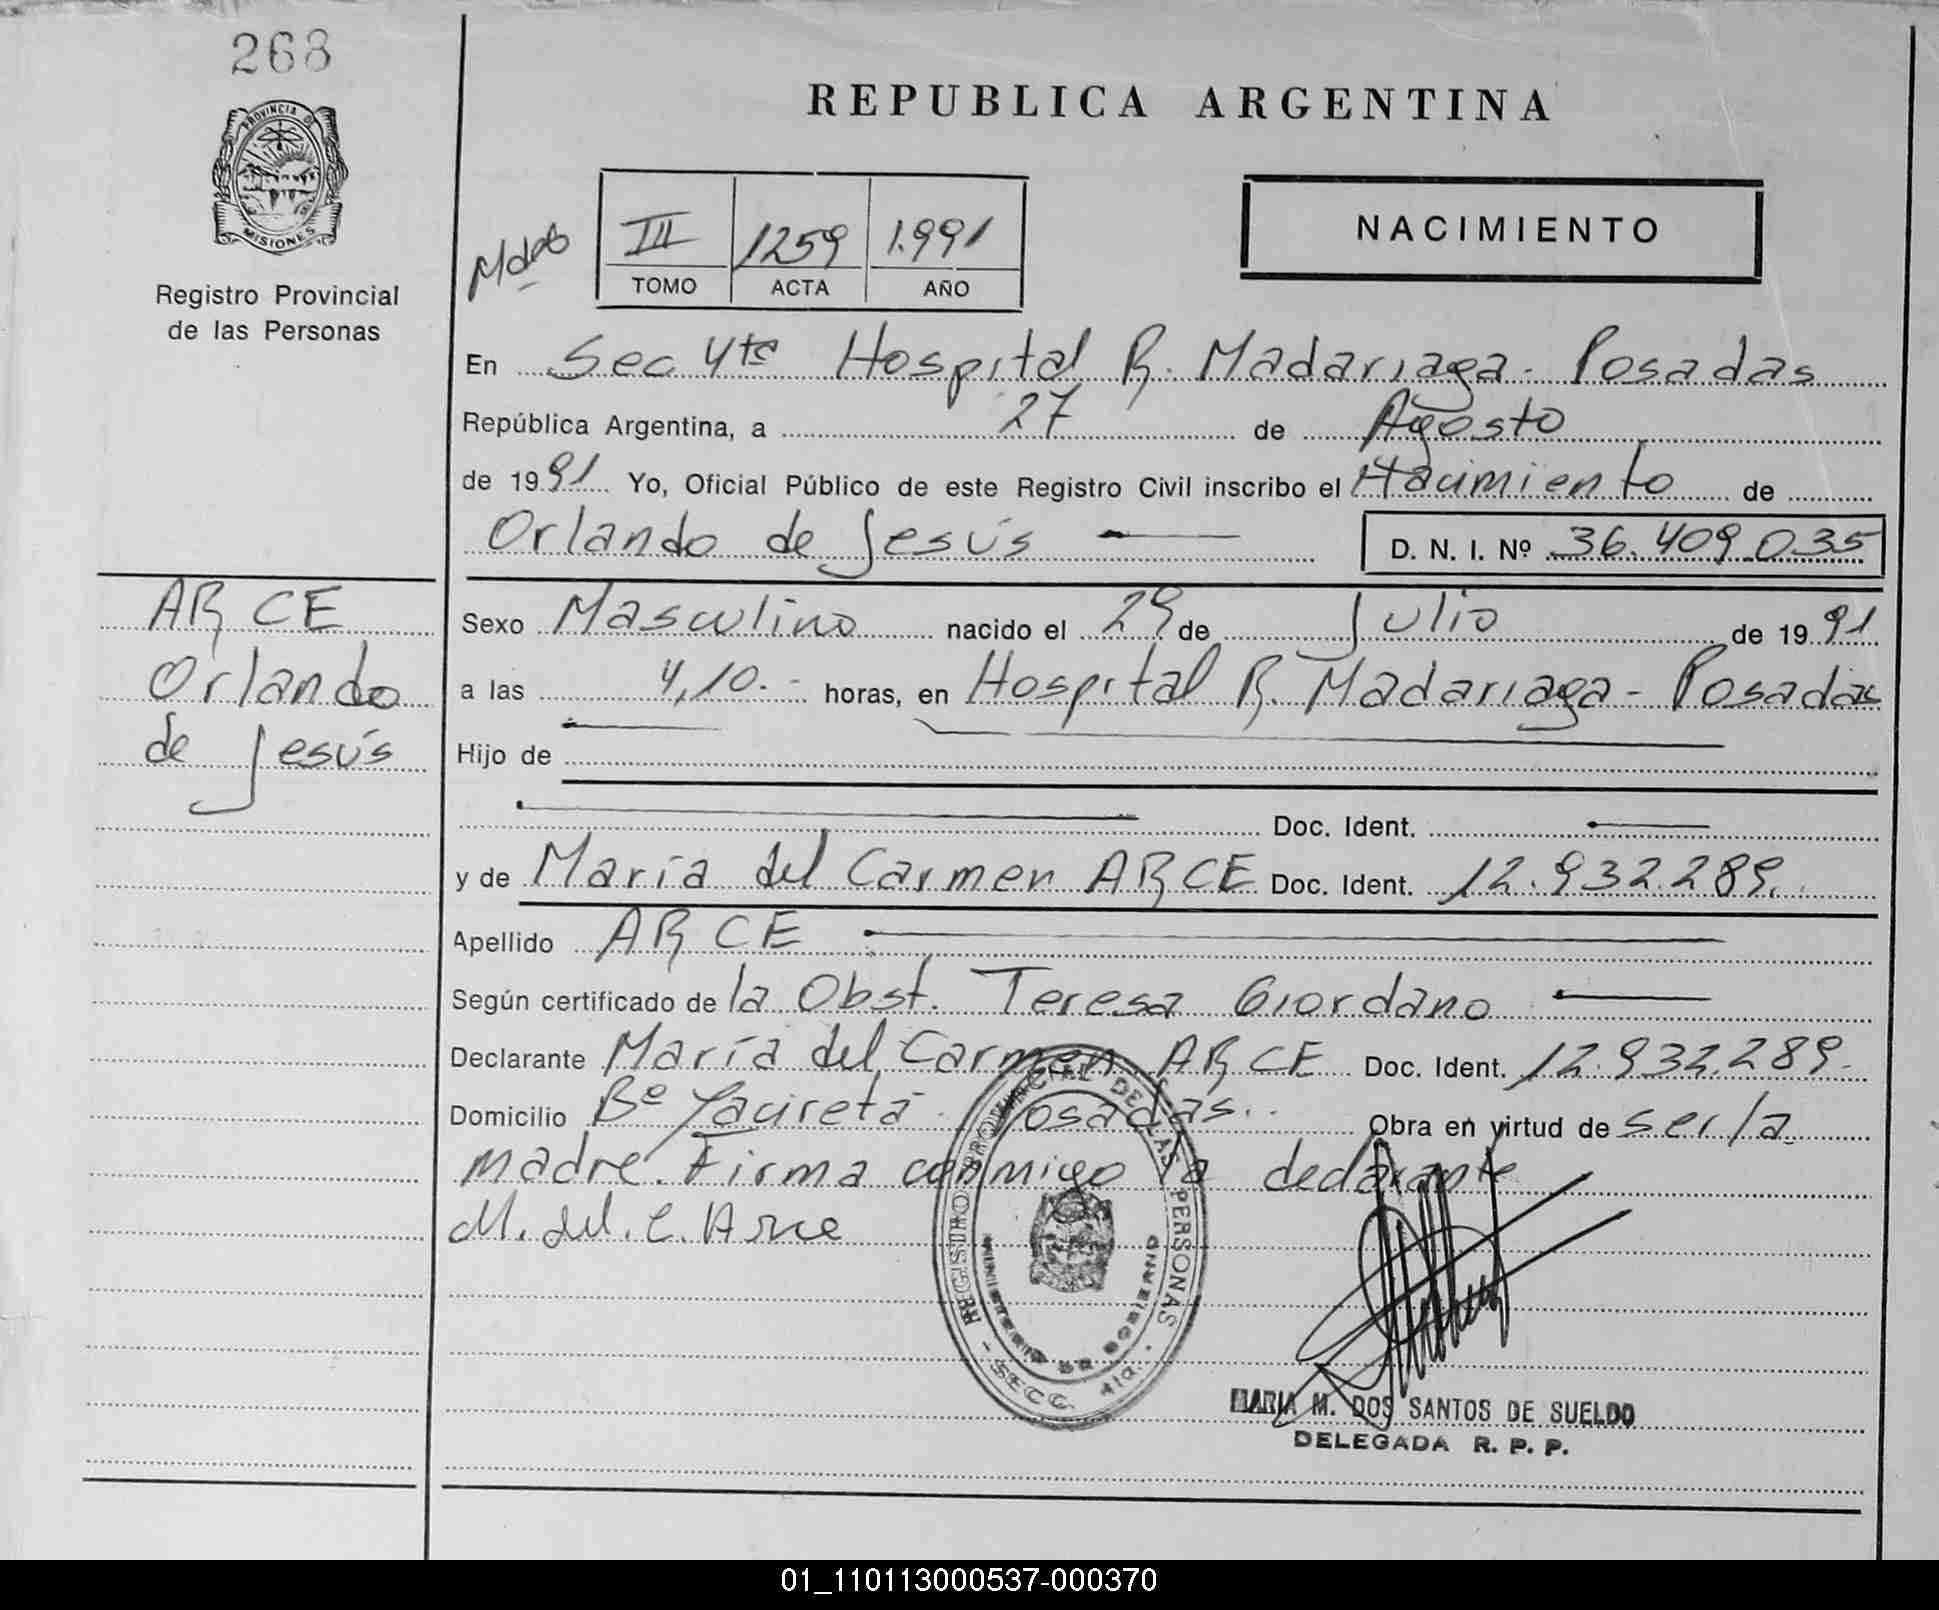 268
PROVINCIA DE
MISIONES
Registro Provincial
de las Personas
REPUBLICA ARGENTINA
NACIMIENTO
III 1259 1.991
TOMO ACTA AÑO
En Sec 4ta Hospital R. Madariaga - Posadas
República Argentina, a 27 de Agosto
de 1991 Yo, Oficial Público de este Registro Civil inscribo el Nacimiento de
Orlando de Jesús D. N. I. Nº 36.409.035
ARCE
Orlando
de Jesús
Sexo Masculino nacido el 29 de Julio de 1991
a las 4,10.- horas, en Hospital R. Madariaga - Posadas
Hijo de
Doc. Ident.
y de María del Carmen ARCE Doc. Ident. 12.932.289.
Apellido ARCE
Según certificado de la Obst. Teresa Giordano
Declarante María del Carmen ARCE Doc. Ident. 12.932.289.-
Domicilio Bº Yaciretá Posadas. Obra en virtud de ser la
madre. Firma conmigo la declarante
M. del. C. Arce
REGISTRO PROVINCIAL DE LAS PERSONAS
MINISTERIO DE GOBIERNO
SECC. 4ta.
MARIA M. DOS SANTOS DE SUELDO
DELEGADA R. P. P.
01_110113000537-000370